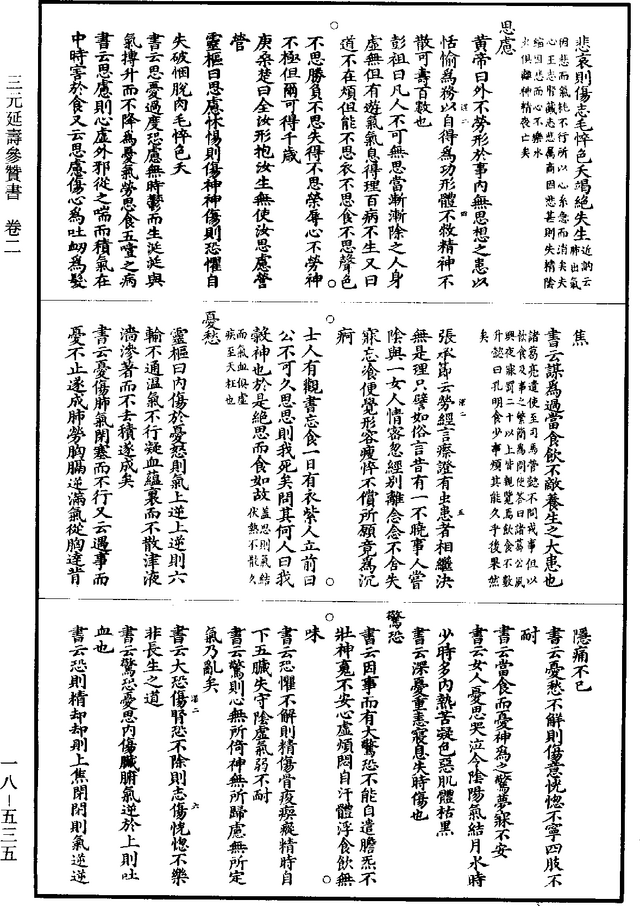 三元延壽參贊書 卷二
一八-五三五
悲哀則傷志毛悴色夭竭絕失生近訥云肺出氣
因悲而氣耗不行所以心系急而消矣夫
心主志腎藏志悲屬商因悲甚則失精陰
縮因悲而心不樂水
火俱離神精喪亡矣
思慮
黃帝曰外不勞形於事內無思想之患以
恬愉爲務以自得爲功形體不敝精神不
散可壽百數也
彭祖曰凡人不可無思當漸漸除之人身
虛無但有遊氣氣息得理百病不生又曰
道不在煩但能不思衣不思食不思聲色
不思勝負不思失得不思榮辱心不勞神
不極但爾可得千歲
庚桑楚曰全汝形抱汝生無使汝思慮營
營
靈樞曰思慮怵惕則傷神神傷則恐懼自
失破䐃脫肉毛悴色夭
書云思憂過度恐慮無時鬱而生涎涎與
氣摶升而不降爲憂氣勞思食五噎之病
書云思慮則心虛外邪從之喘而積氣在
中時害於食又云思慮傷心爲吐衂爲髮
焦
書云謀爲過當食飲不敵養生之大患也
諸葛亮遣使至司馬營懿不問戎事但以
飲食及事之繁簡爲問使答曰諸葛公夙
興夜寐罰二十以上皆親覽焉飲食不數
升懿曰孔明食少事煩其能久乎後果然
矣
張承節云勞經言瘵證有虫患者相繼決
無是理只譬如俗言昔有一不曉事人嘗
陰與一女人情密忽經別離念念不舍失
寐忘飡便覺形容瘦悴不償所願竟爲沉
痾
士人有觀書忘食一日有衣紫人立前曰
公不可久思思則我死矣問其何人曰我
穀神也於是絕思而食如故蓋思則氣結
伏熱不散久
而氣血俱虛
疾至夭枉也
憂愁
靈樞曰內傷於憂怒則氣上逆上逆則六
輸不通溫氣不行凝血蘊裏而不散津液
濇滲著而不去積遂成矣
書云憂傷肺氣閉塞而不行又云遇事而
憂不止遂成肺勞胸膈逆滿氣從胸達背
隱痛不已
書云憂愁不解則傷意恍惚不寧四肢不
耐
書云當食而憂神爲之驚夢寐不安
書云女人憂思哭泣令陰陽氣結月水時
少時多內熱苦凝色惡肌體枯黑
書云深憂重恚寢息失時傷也
驚恐
書云因事而有大驚恐不能自遣膽炁不
壯神䰟不安心虛煩悶自汗體浮食飲無
味
書云恐懼不解則精傷骨痠瘈瘲精時自
下五臟失守陰虛氣弱不耐
書云驚則心無所倚神無所歸慮無所定
氣乃亂矣
書云大恐傷腎恐不除則志傷恍惚不樂
非長生之道
書云驚恐憂思內傷臟腑氣逆於上則吐
血也
書云恐則精却却則上焦閉閉則氣逆逆